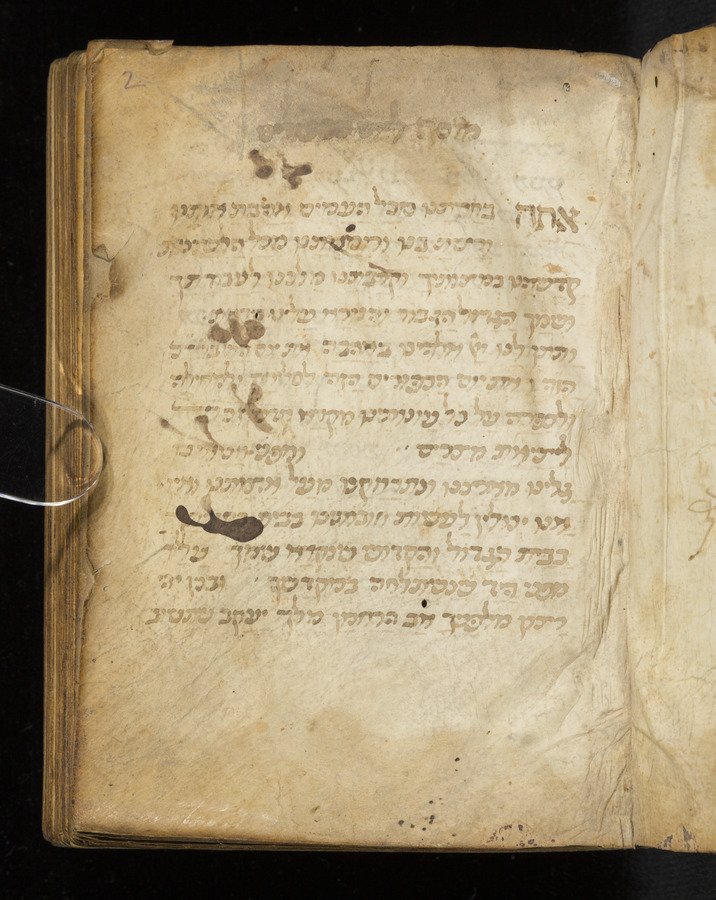 2
מוסף
אתה בחרתנו מכל העמים אהבת אותנו
ורצית בנו ורוממתנו מכל הלשונות
קדשתנו במצותיך וקרבתנו מלכנו לעבודתך
ושמך הגדול הגבור והנורא עלינו קראת
ותתן לנו יי אלהינו באהבה את יום
הזה הכפורים הזה למחילה ולסליחה
ולכפרה על כל עונותינו מקרא קדש זכר
ליציאת מצרים ומפני חטאינו
גלינו מארצנו ונתרחקנו מעל אדמתנו ואין
אנו יכולין לעשות חובותינו בבית
בבית הגדול והקדוש שנקרא שמך עליו
מפני היד שנשתלחה במקדשך ובכן יהי
רצון מלפניך אב הרחמן מלך יעקב שתשוב